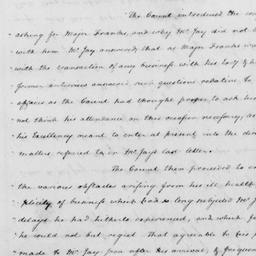 The Count introduced the con
asking for Major Franks, and why Mr Jay did not b
with him. Mr Jay answered that as Major Franks wa
with the transaction of any business with his Excy & h
former interviews answered such questions relative to
affairs as the Count had thought proper to ask he
not think his attendance on this occasion necessary, as
his Excellency meant to enter at present into the dis
matters referred to in Mr Jay's last letter.
The Count then proceeded to
the various obstacles arising from his ill health
plicity of business which had so long subjected Mr J
delays he had hitherto experienced, and which
he could not but regret. That agreeable to his
made to Mr Jay soon after his arrival, & frequen